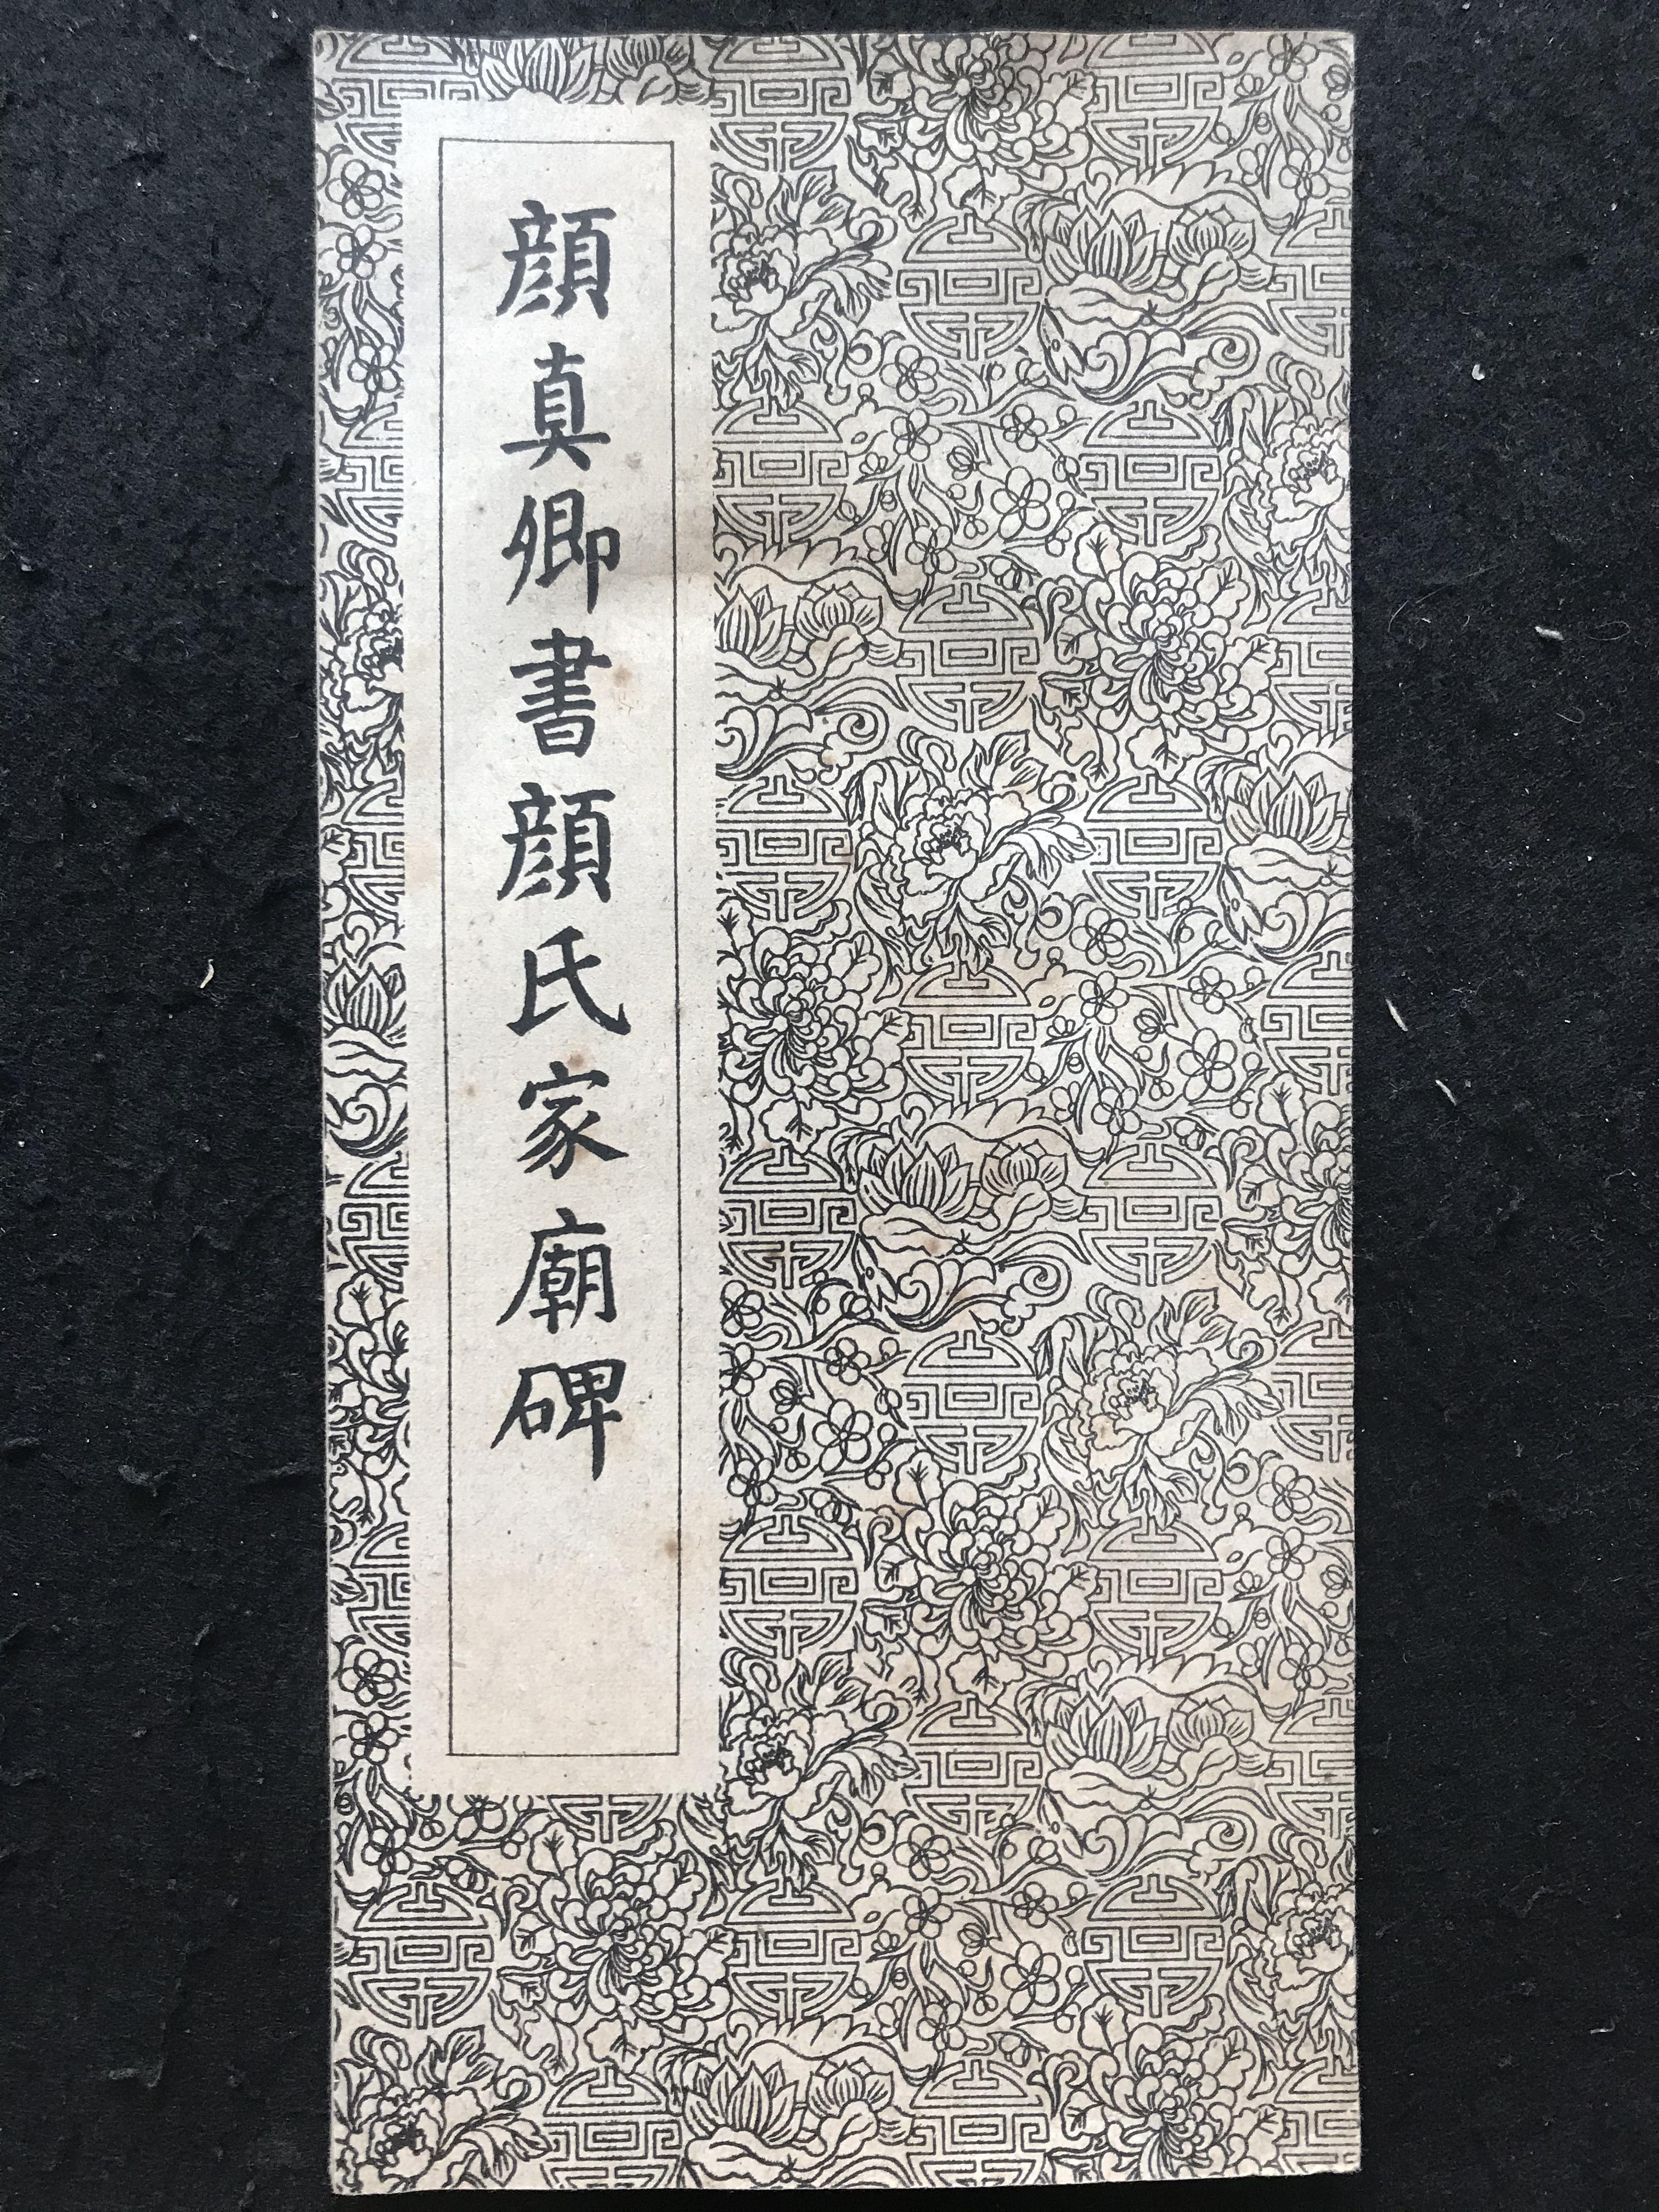 顔真卿書顔氏家廟碑